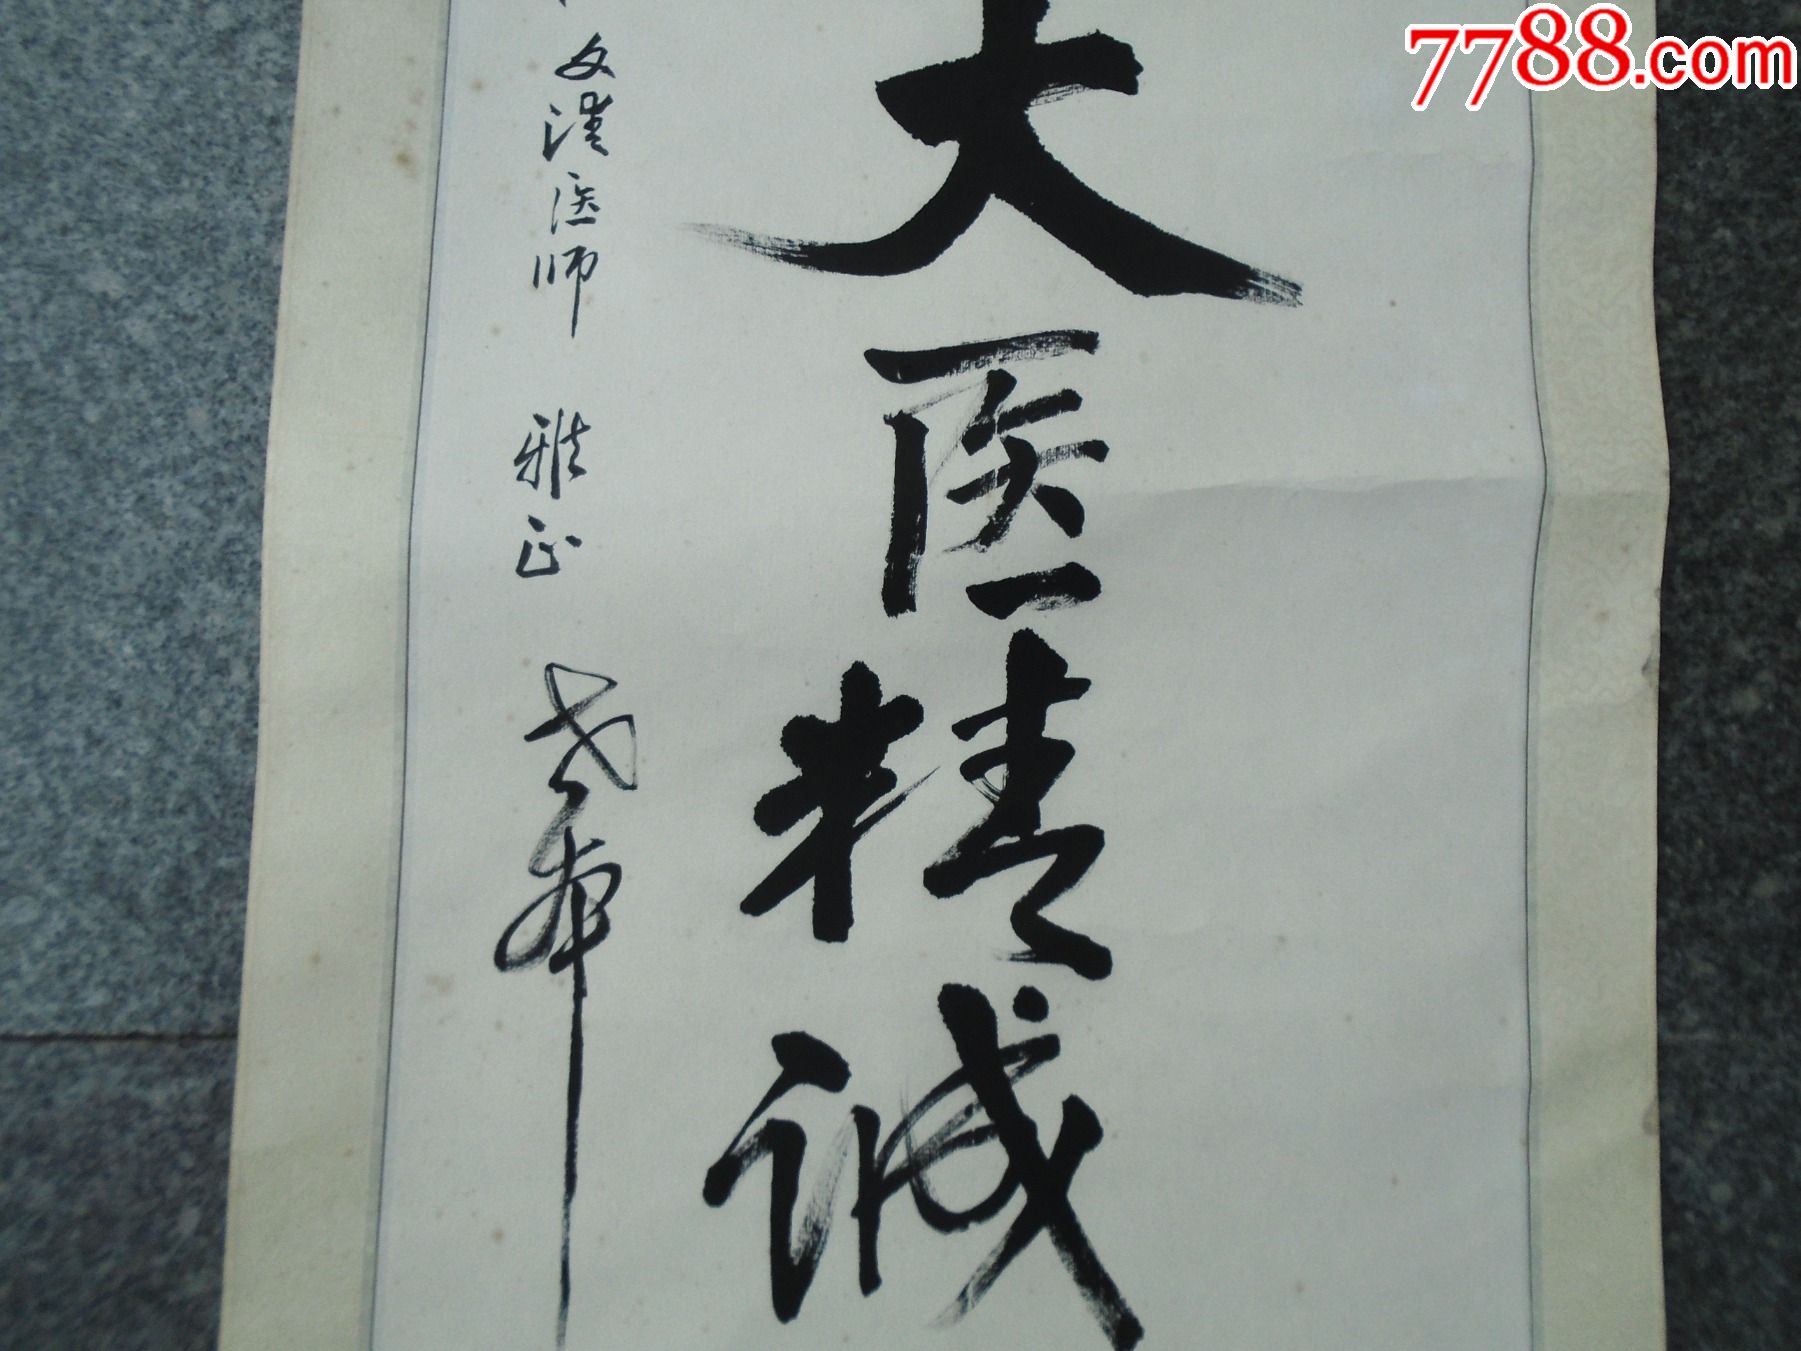 7788.com
大医精诚
文汉医师 雅正